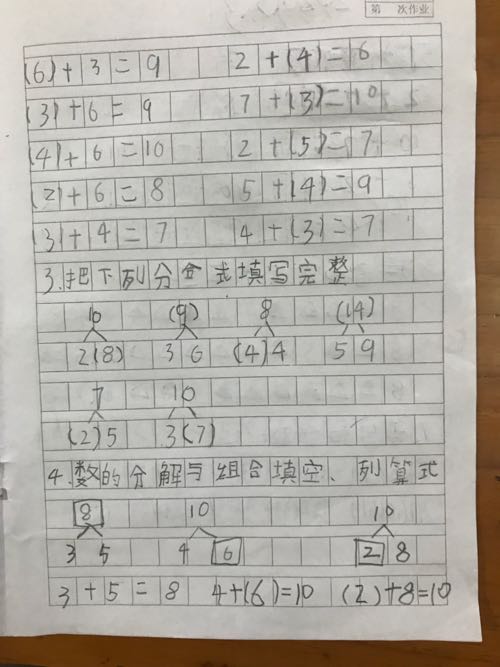 第 次作业
(6)+3=9 2+(4)=6
(3)+6=9 7+(3)=10
(4)+6=10 2+(5)=7
(2)+6=8 5+(4)=9
(3)+4=7 4+(3)=7
3.把下列分合式填写完整
10 (9) 8 (14)
2(8) 3 6 (4)4 5 9
7 10
(2)5 3(7)
4.数的分解与组合填空、列算式
8 10 10
3 5 4 6 2 8
3+5=8 4+(6)=10 (2)+8=10